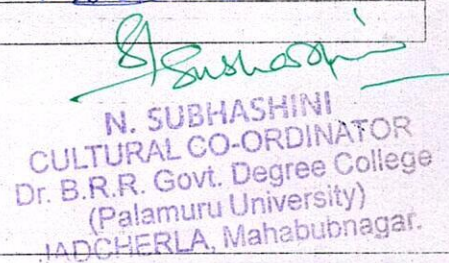 Subhashini
N. SUBHASHINI
CULTURAL CO-ORDINATOR
Dr. B.R.R. Govt. Degree College
(Palamuru University)
JADCHERLA, Mahabubnagar.